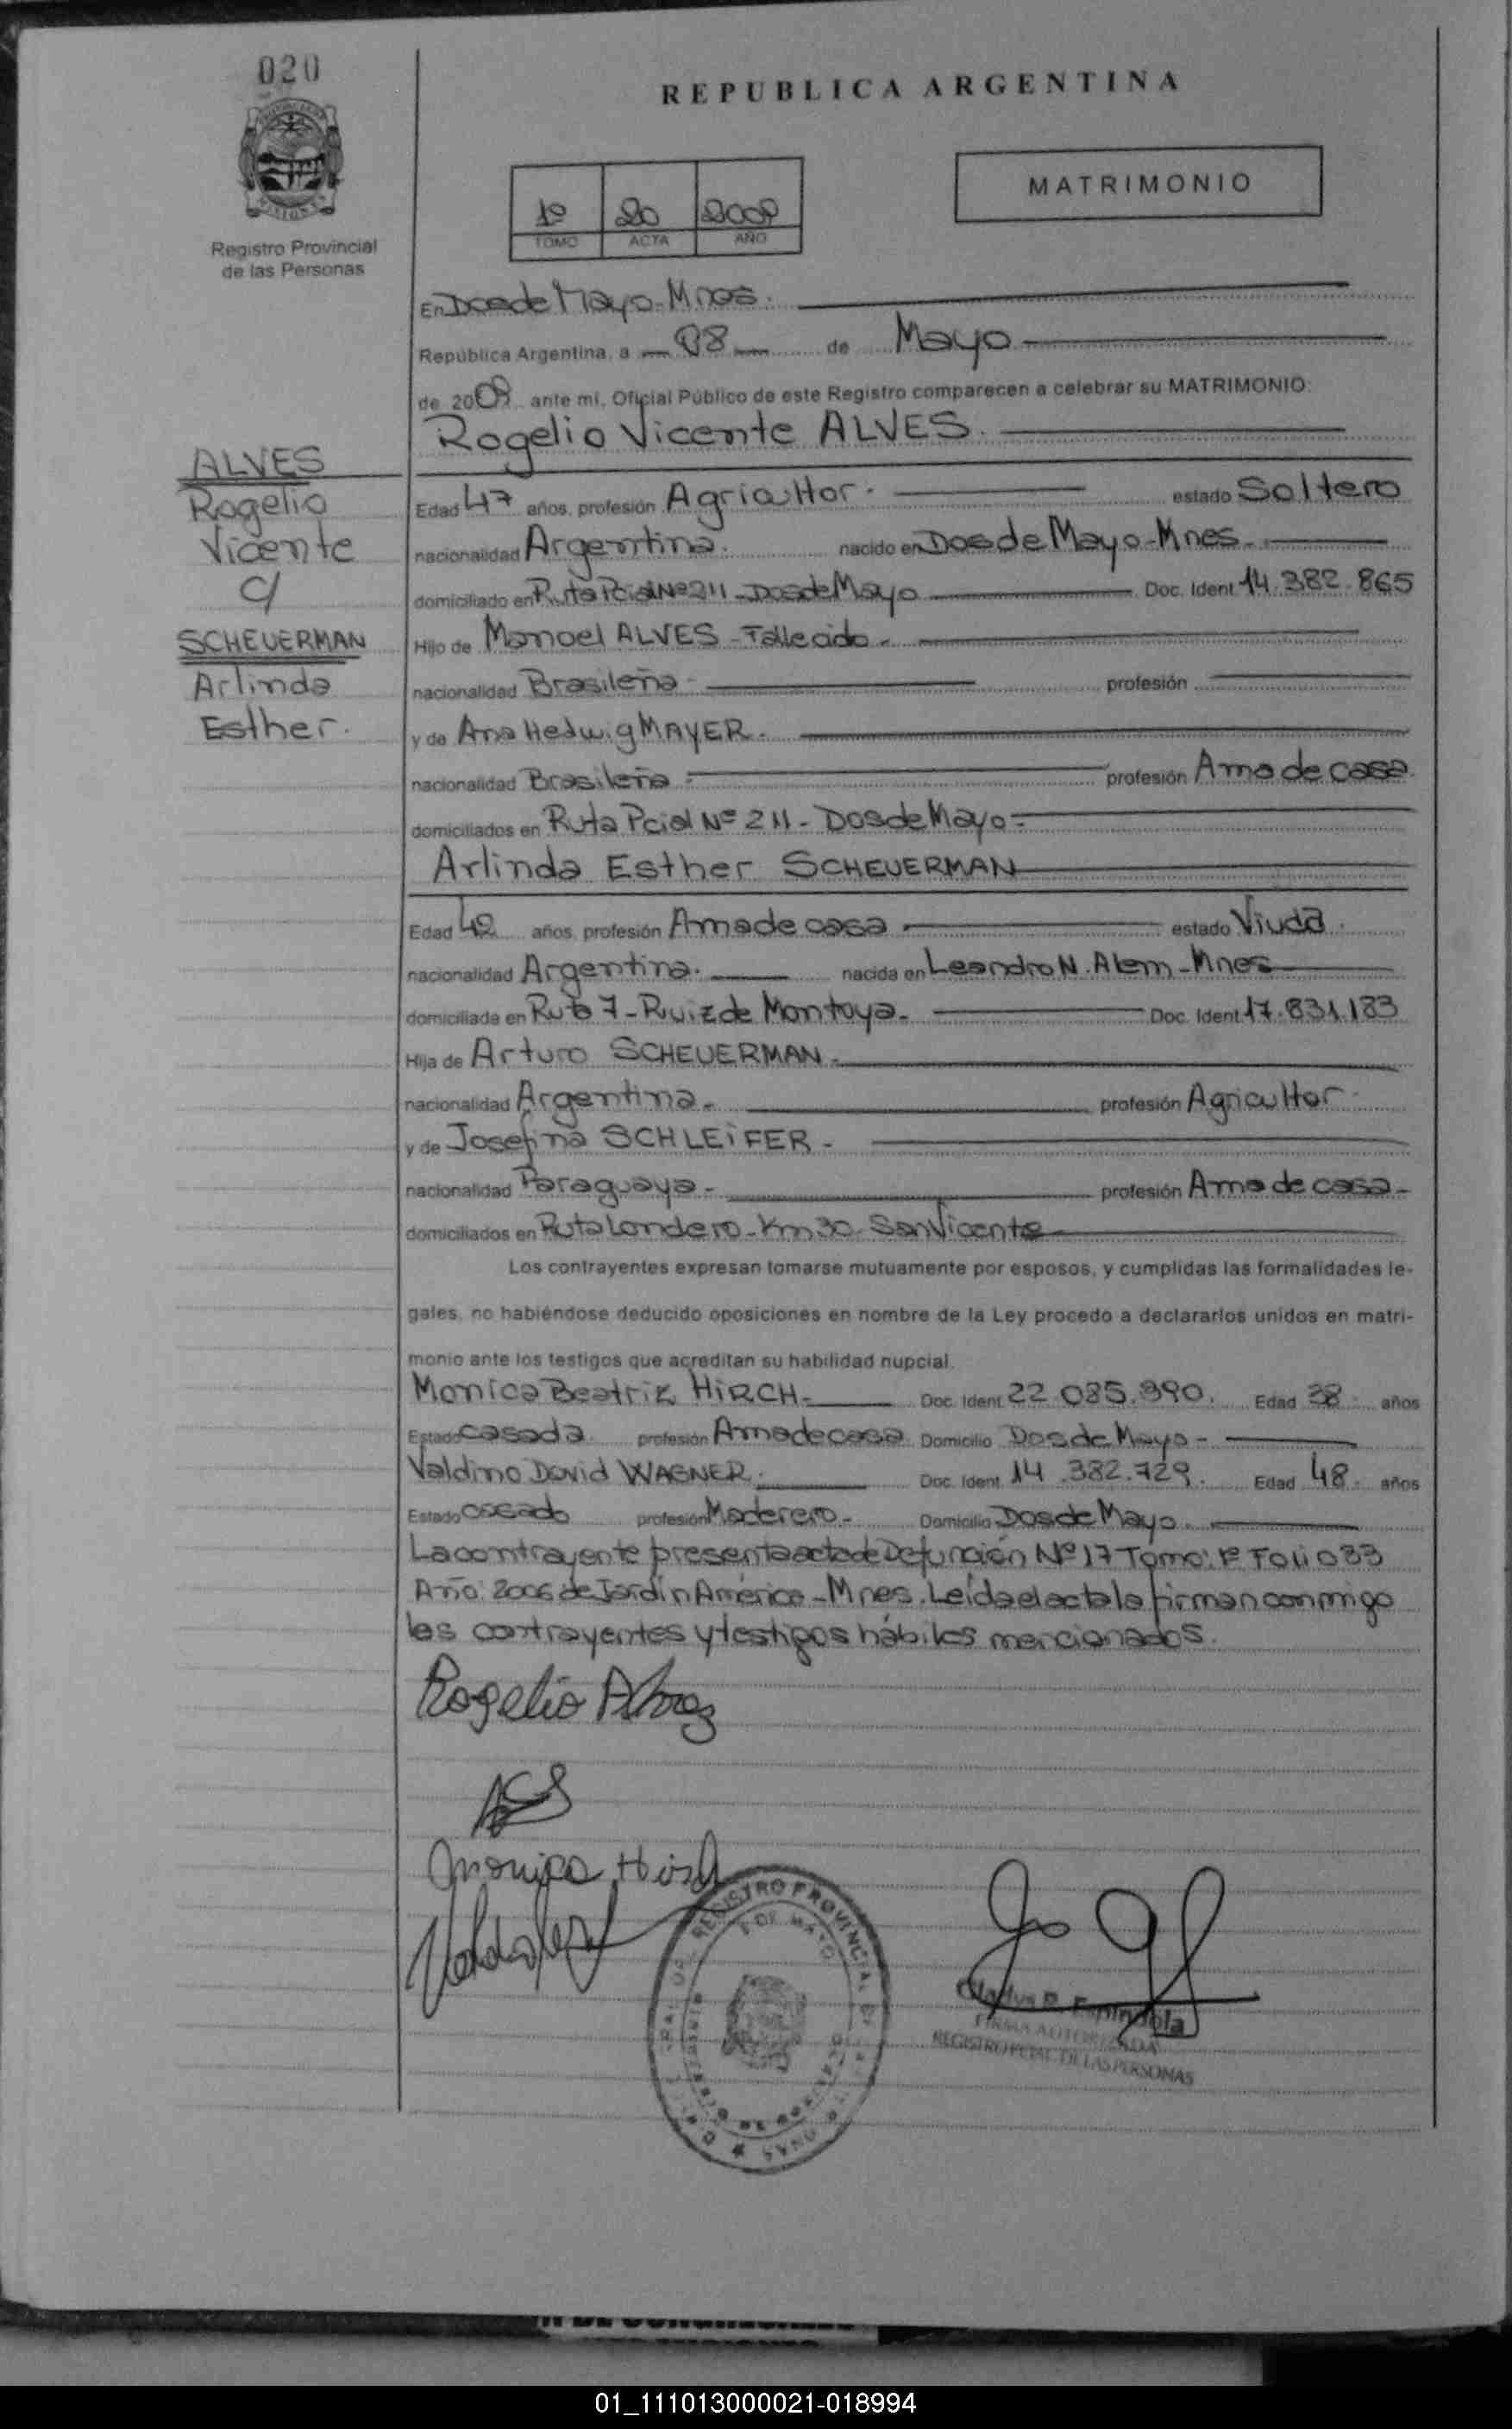 020
REPUBLICA ARGENTINA
MATRIMONIO
1º 20 2009
TOMO ACTA AÑO
Registro Provincial
de las Personas
En Dos de Mayo - Mnes.
República Argentina, a 08 de Mayo
de 2009 ante mi, Oficial Público de este Registro comparecen a celebrar su MATRIMONIO:
Rogelio Vicente ALVES.
ALVES
Rogelio
Vicente
c/
SCHEUERMAN
Arlinda
Esther.
Edad 47 años, profesión Agricultor. estado Soltero
nacionalidad Argentina. nacido en Dos de Mayo - Mnes.
domiciliado en Ruta Pcial Nº 211 - Dos de Mayo Doc. Ident. 14.382.865
Hijo de Manoel ALVES - Fallecido -
nacionalidad Brasileña - profesión
y de Ana Hedwig MAYER.
nacionalidad Brasileña - profesión Ama de casa.
domiciliados en Ruta Pcial Nº 211 - Dos de Mayo -
Arlinda Esther SCHEUERMAN
Edad 42 años, profesión Ama de casa estado Viuda.
nacionalidad Argentina. nacida en Leandro N. Alem - Mnes
domiciliada en Ruta 7 - Ruiz de Montoya - Doc. Ident. 17.831.183
Hija de Arturo SCHEUERMAN -
nacionalidad Argentina - profesión Agricultor.
y de Josefina SCHLEIFER -
nacionalidad Paraguaya - profesión Ama de casa -
domiciliados en Ruta Londero - Km 30 - San Vicente
Los contrayentes expresan tomarse mutuamente por esposos, y cumplidas las formalidades le-
gales, no habiéndose deducido oposiciones en nombre de la Ley procedo a declararlos unidos en matri-
monio ante los testigos que acreditan su habilidad nupcial.
Monica Beatriz HIRCH - Doc. Ident. 22.085.990. Edad 38 años
Estado casada profesión Ama de casa Domicilio Dos de Mayo -
Valdino David WAGNER. Doc. Ident. 14.382.729. Edad 48 años
Estado casado profesión Maderero - Domicilio Dos de Mayo.
La contrayente presenta acta de Defunción Nº 17 Tomo: 1º Folio 33
Año: 2006 de Jardín América - Mnes. Leída el acta la firman conmigo
los contrayentes y testigos hábiles mencionados.
Rogelio Alvez
Monica Hirch
REGISTRO PROVINCIAL
DE MAYO
Gladys R. Espindola
FIRMA AUTORIZADA
REGISTRO PCIAL. DE LAS PERSONAS
01_111013000021-018994